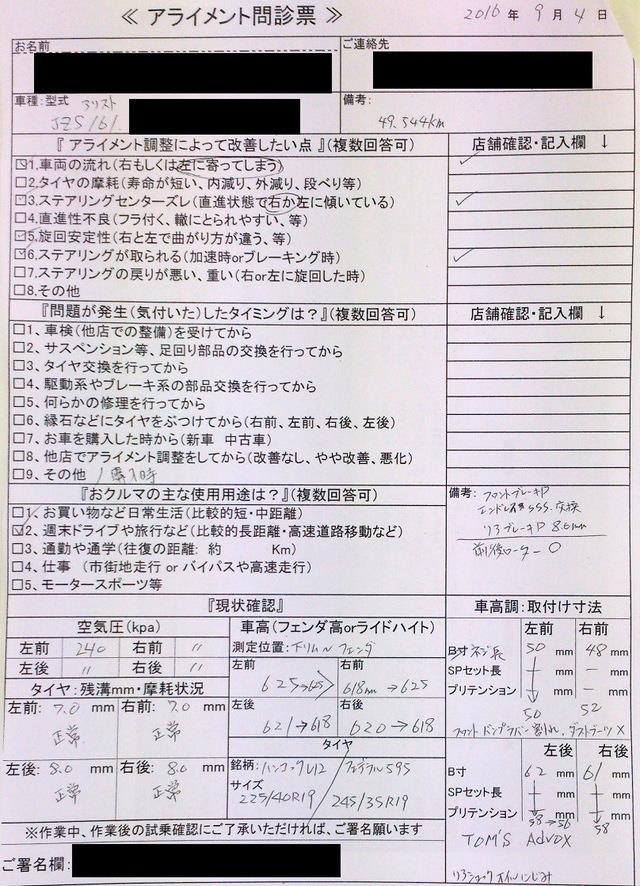 ≪ アライメント問診票 ≫
2016 年 9 月 4 日
お名前
ご連絡先
車種:型式 アリスト
JZS161.
備考:
49.544km
『 アライメント調整によって改善したい点 』(複数回答可)
店舗確認・記入欄 ↓
☑1.車両の流れ(右もしくは左に寄ってしまう)
□2.タイヤの摩耗(寿命が短い、内減り、外減り、段べり等)
☑3.ステアリングセンターズレ(直進状態で右か左に傾いている)
□4.直進性不良(フラ付く、轍にとられやすい、等)
☑5.旋回安定性(右と左で曲がり方が違う、等)
☑6.ステアリングが取られる(加速時orブレーキング時)
□7.ステアリングの戻りが悪い、重い(右or左に旋回した時)
□8.その他
『問題が発生(気付いた)したタイミングは?』(複数回答可)
店舗確認・記入欄 ↓
□1、車検(他店での整備)を受けてから
□2、サスペンション等、足回り部品の交換を行ってから
□3、タイヤ交換を行ってから
□4、駆動系やブレーキ系の部品交換を行ってから
□5、何らかの修理を行ってから
□6、縁石などにタイヤをぶつけてから(右前、左前、右後、左後)
□7、お車を購入した時から(新車 中古車)
□8、他店でアライメント調整をしてから(改善なし、やや改善、悪化)
□9、その他 購入時
『おクルマの主な使用用途は?』(複数回答可)
□1、お買い物など日常生活(比較的短・中距離)
☑2、週末ドライブや旅行など(比較的長距離・高速道路移動など)
□3、通勤や通学(往復の距離: 約 Km)
□4、仕事 (市街地走行 or バイパスや高速走行)
□5、モータースポーツ等
備考: フロントブレーキP
エンドレス SSS.交換
リアブレーキP 8.0mm
前後ローター ○
『現状確認』
空気圧(kpa)
左前 240 右前 〃
左後 〃 右後 〃
タイヤ:残溝mm・摩耗状況
左前: 7.0 mm 右前: 7.0 mm
正常 正常
左後: 8.0 mm 右後: 8.0 mm
正常 正常
車高(フェンダ高orライドハイト)
測定位置: 下リム〜フェンダ
左前 右前
625→625 618mm→625
左後 右後
621→618 620→618
タイヤ
銘柄: ハンコックV12 フェデラル595
サイズ
225/40R19 245/35R19
車高調:取付け寸法
左前 右前
B寸 ネジ長 50 mm 48 mm
SPセット長 mm - mm
プリテンション mm - mm
50 52
フロント バンプラバー 割れ、ダストブーツ×
左後 右後
B寸 62 mm 61 mm
SPセット長 mm mm
プリテンション mm mm
58→56 58
TOM'S Advox
リアショック オイルにじみ
※作業中、作業後の試乗確認にご了承いただければ、ご署名願います
ご署名欄: